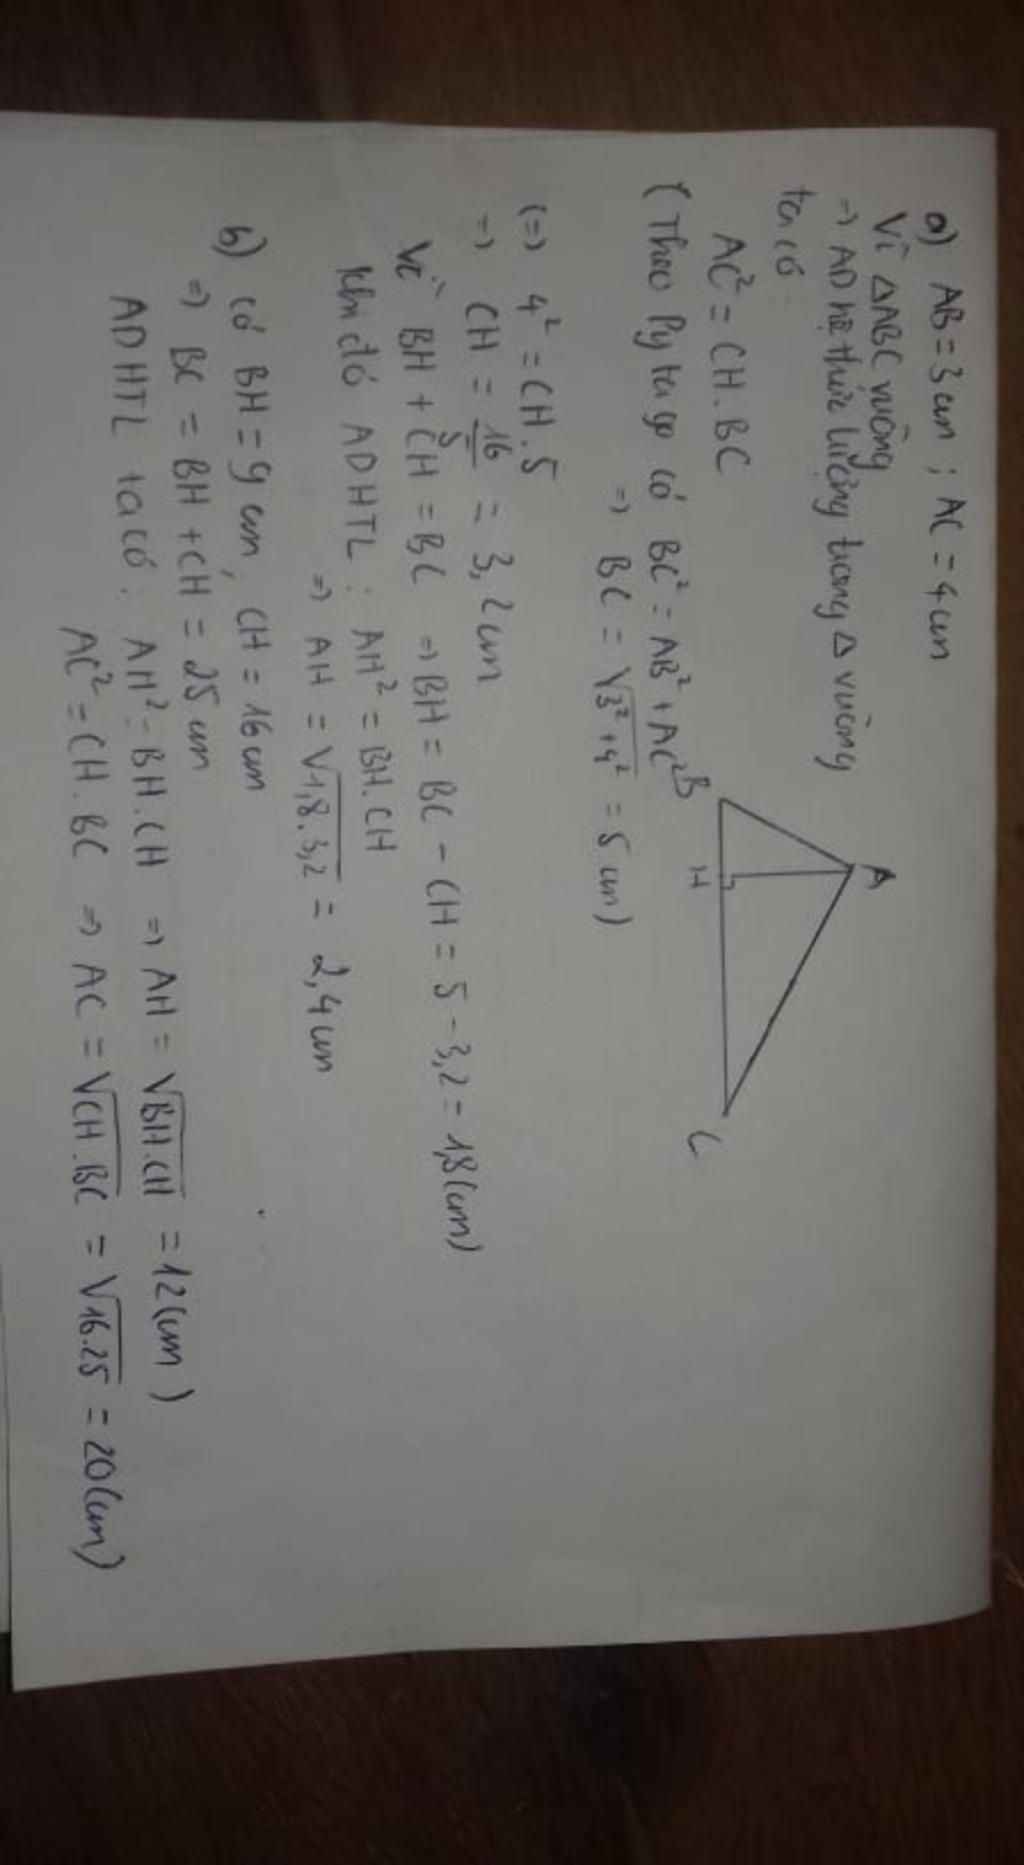 a) AB = 3cm ; AC = 4cm
Vì ΔABC vuông
⇒ AD hệ thức lượng trong Δ vuông
ta có :
AC² = CH.BC
(Theo Pytago có BC² = AB² + AC²
⇒ BC = √3²+4² = 5cm)
A
B
H
C
(=) 4² = CH.5
⇒ CH = 16/5 = 3,2cm
Vì BH + CH = BC ⇒ BH = BC - CH = 5 - 3,2 = 1,8(cm)
Khi đó ADHTL : AH² = BH.CH
⇒ AH = √1,8.3,2 = 2,4cm
b) có BH = 9cm, CH = 16cm
⇒ BC = BH + CH = 25cm
ADHTL ta có : AH² = BH.CH ⇒ AH = √BH.CH = 12(cm)
AC² = CH.BC ⇒ AC = √CH.BC = √16.25 = 20(cm)